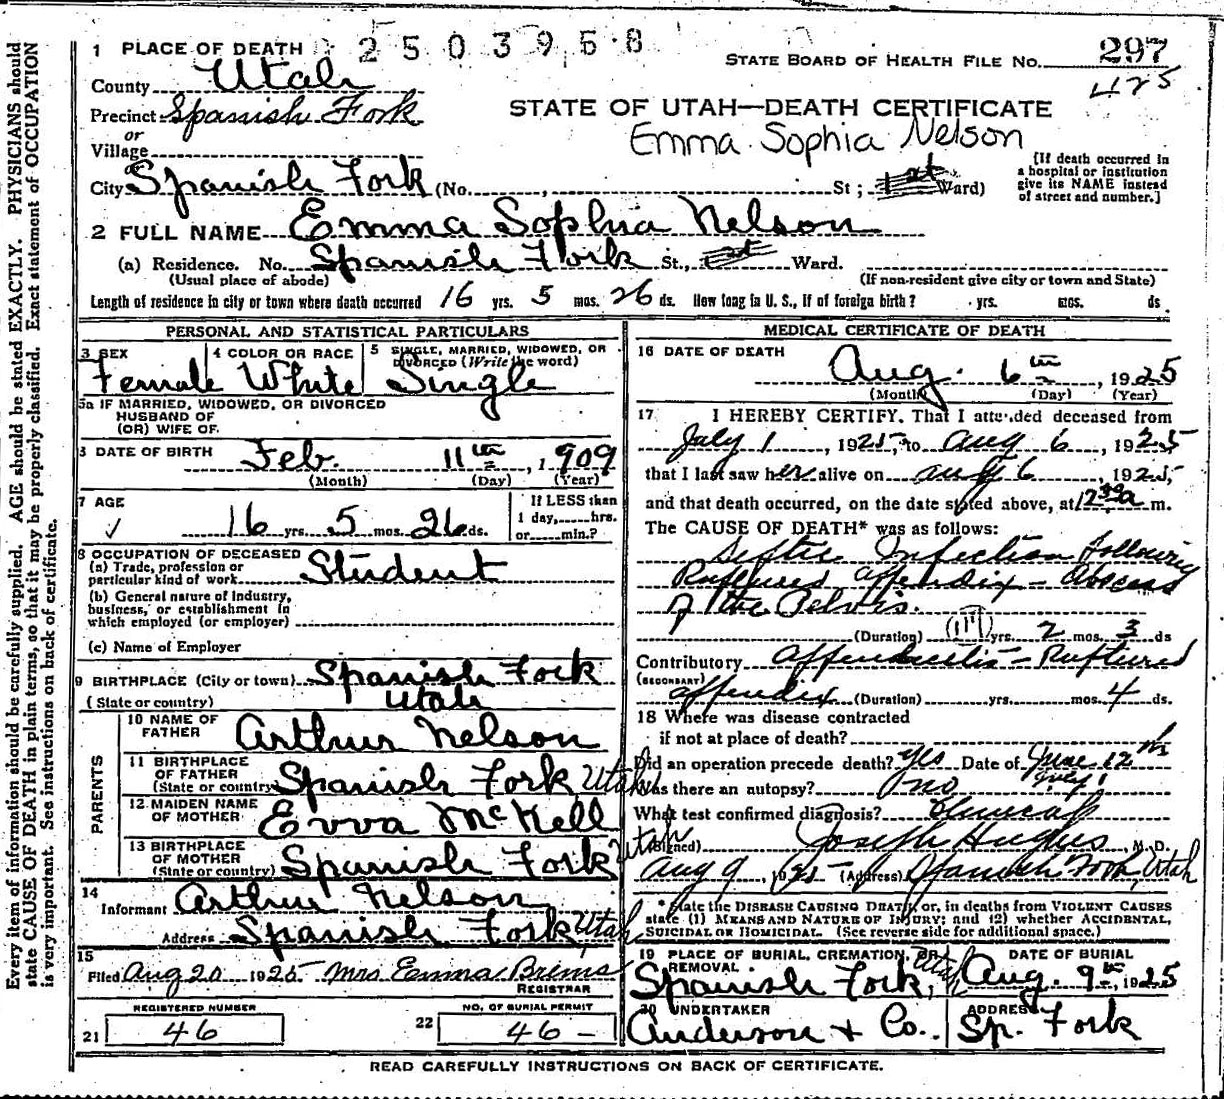 Every item of information should be carefully supplied. AGE should be stated EXACTLY. PHYSICIANS should
state CAUSE OF DEATH in plain terms, so that it may be properly classified. Exact statement of OCCUPATION
is very important. See instructions on back of certificate.
1 PLACE OF DEATH 2503958
STATE BOARD OF HEALTH FILE No. 297
425
County Utah
STATE OF UTAH—DEATH CERTIFICATE
Precinct Spanish Fork
Emma Sophia Nelson
or
Village
[If death occurred in
a hospital or institution
give its NAME instead
of street and number.]
City Spanish Fork (No. , St; Ward)
2 FULL NAME Emma Sophia Nelson
(a) Residence. No. Spanish Fork St., Ward.
(Usual place of abode) (If non-resident give city or town and State)
Length of residence in city or town where death occurred 16 yrs. 5 mos. 26 ds. How long in U. S., if of foreign birth? yrs. mos. ds
PERSONAL AND STATISTICAL PARTICULARS
3 SEX 4 COLOR OR RACE 5 SINGLE, MARRIED, WIDOWED, OR
DIVORCED (Write the word)
Female White Single
5a IF MARRIED, WIDOWED, OR DIVORCED
HUSBAND OF
(OR) WIFE OF
DATE OF BIRTH Feb. 11th, 1909
(Month) (Day) (Year)
7 AGE If LESS than
✓ 16 yrs. 5 mos. 26 ds. 1 day, hrs.
or min.?
8 OCCUPATION OF DECEASED
(a) Trade, profession or
particular kind of work Student
(b) General nature of industry,
business, or establishment in
which employed (or employer)
(c) Name of Employer
9 BIRTHPLACE (City or town) Spanish Fork
(State or country) Utah
PARENTS
10 NAME OF
FATHER Arthur Nelson
11 BIRTHPLACE
OF FATHER
(State or country) Spanish Fork Utah
12 MAIDEN NAME
OF MOTHER Evva McKell
13 BIRTHPLACE
OF MOTHER
(State or country) Spanish Fork Utah
14
Informant Arthur Nelson
Address Spanish Fork, Utah
15
Filed Aug 20 1925 Mrs Emma Brims
REGISTRAR
REGISTERED NUMBER NO. OF BURIAL PERMIT
21 46 22 46 —
MEDICAL CERTIFICATE OF DEATH
16 DATE OF DEATH
Aug. 6th, 1925
(Month) (Day) (Year)
17 I HEREBY CERTIFY. That I attended deceased from
July 1, 1925, to Aug 6, 1925
that I last saw her alive on Aug 6, 1925,
and that death occurred, on the date stated above, at 12 30 a m.
The CAUSE OF DEATH* was as follows:
Septic Infection Following
Ruptured appendix — Abscess
of the Pelvis.
(Duration) yrs. 2 mos. 3 ds
Contributory Appendicitis — Ruptured
(SECONDARY)
appendix (Duration) yrs. mos. 4 ds.
18 Where was disease contracted
if not at place of death?
Did an operation precede death? yes Date of June 12th
July 1
Was there an autopsy? no
What test confirmed diagnosis? Clinical
(Signed) Joseph Hughes, M. D.
Aug 9, 1925 (Address) Spanish Fork, Utah
*State the DISEASE CAUSING DEATH, or, in deaths from VIOLENT CAUSES
state (1) MEANS AND NATURE OF INJURY; and (2) whether ACCIDENTAL,
SUICIDAL OR HOMICIDAL. (See reverse side for additional space.)
19 PLACE OF BURIAL, CREMATION, OR
REMOVAL DATE OF BURIAL
Spanish Fork, Utah Aug. 9th, 1925
20 UNDERTAKER ADDRESS
Anderson & Co. Sp. Fork
READ CAREFULLY INSTRUCTIONS ON BACK OF CERTIFICATE.